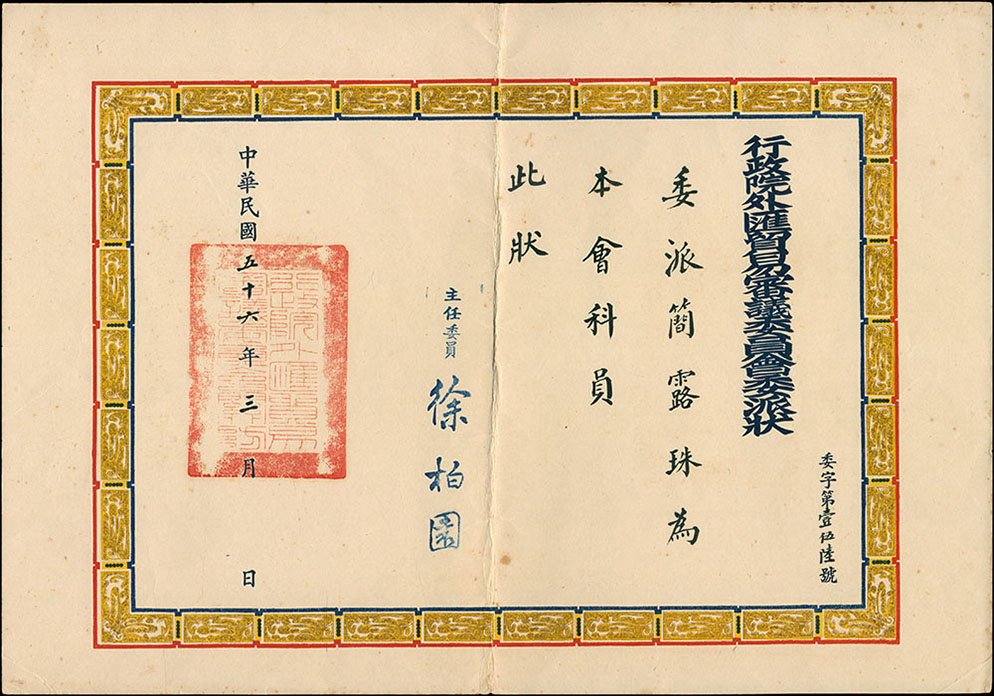 行政院外匯貿易審議委員會委派狀
委字第壹伍陸號
委派簡露珠為
本會科員
此狀
主任委員 徐柏園
中華民國五十六年三月 日